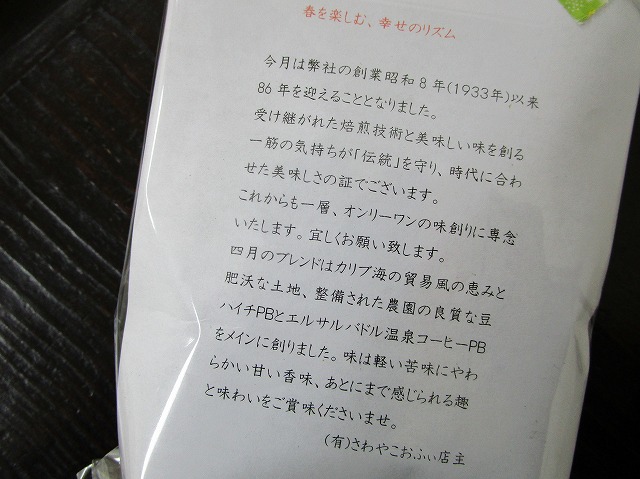 春を楽しむ、幸せのリズム
今月は弊社の創業昭和8年(1933年)以来
86年を迎えることとなりました。
受け継がれた焙煎技術と美味しい味を創る
一筋の気持ちが「伝統」を守り、時代に合わ
せた美味しさの証でございます。
これからも一層、オンリーワンの味創りに専念
いたします。宜しくお願い致します。
四月のブレンドはカリブ海の貿易風の恵みと
肥沃な土地、整備された農園の良質な豆
ハイチPBとエルサルバドル温泉コーヒーPB
をメインに創りました。味は軽い苦味にやわ
らかい甘い香味、あとにまで感じられる趣
と味わいをご賞味くださいませ。
(有)さわやこおふぃ店主